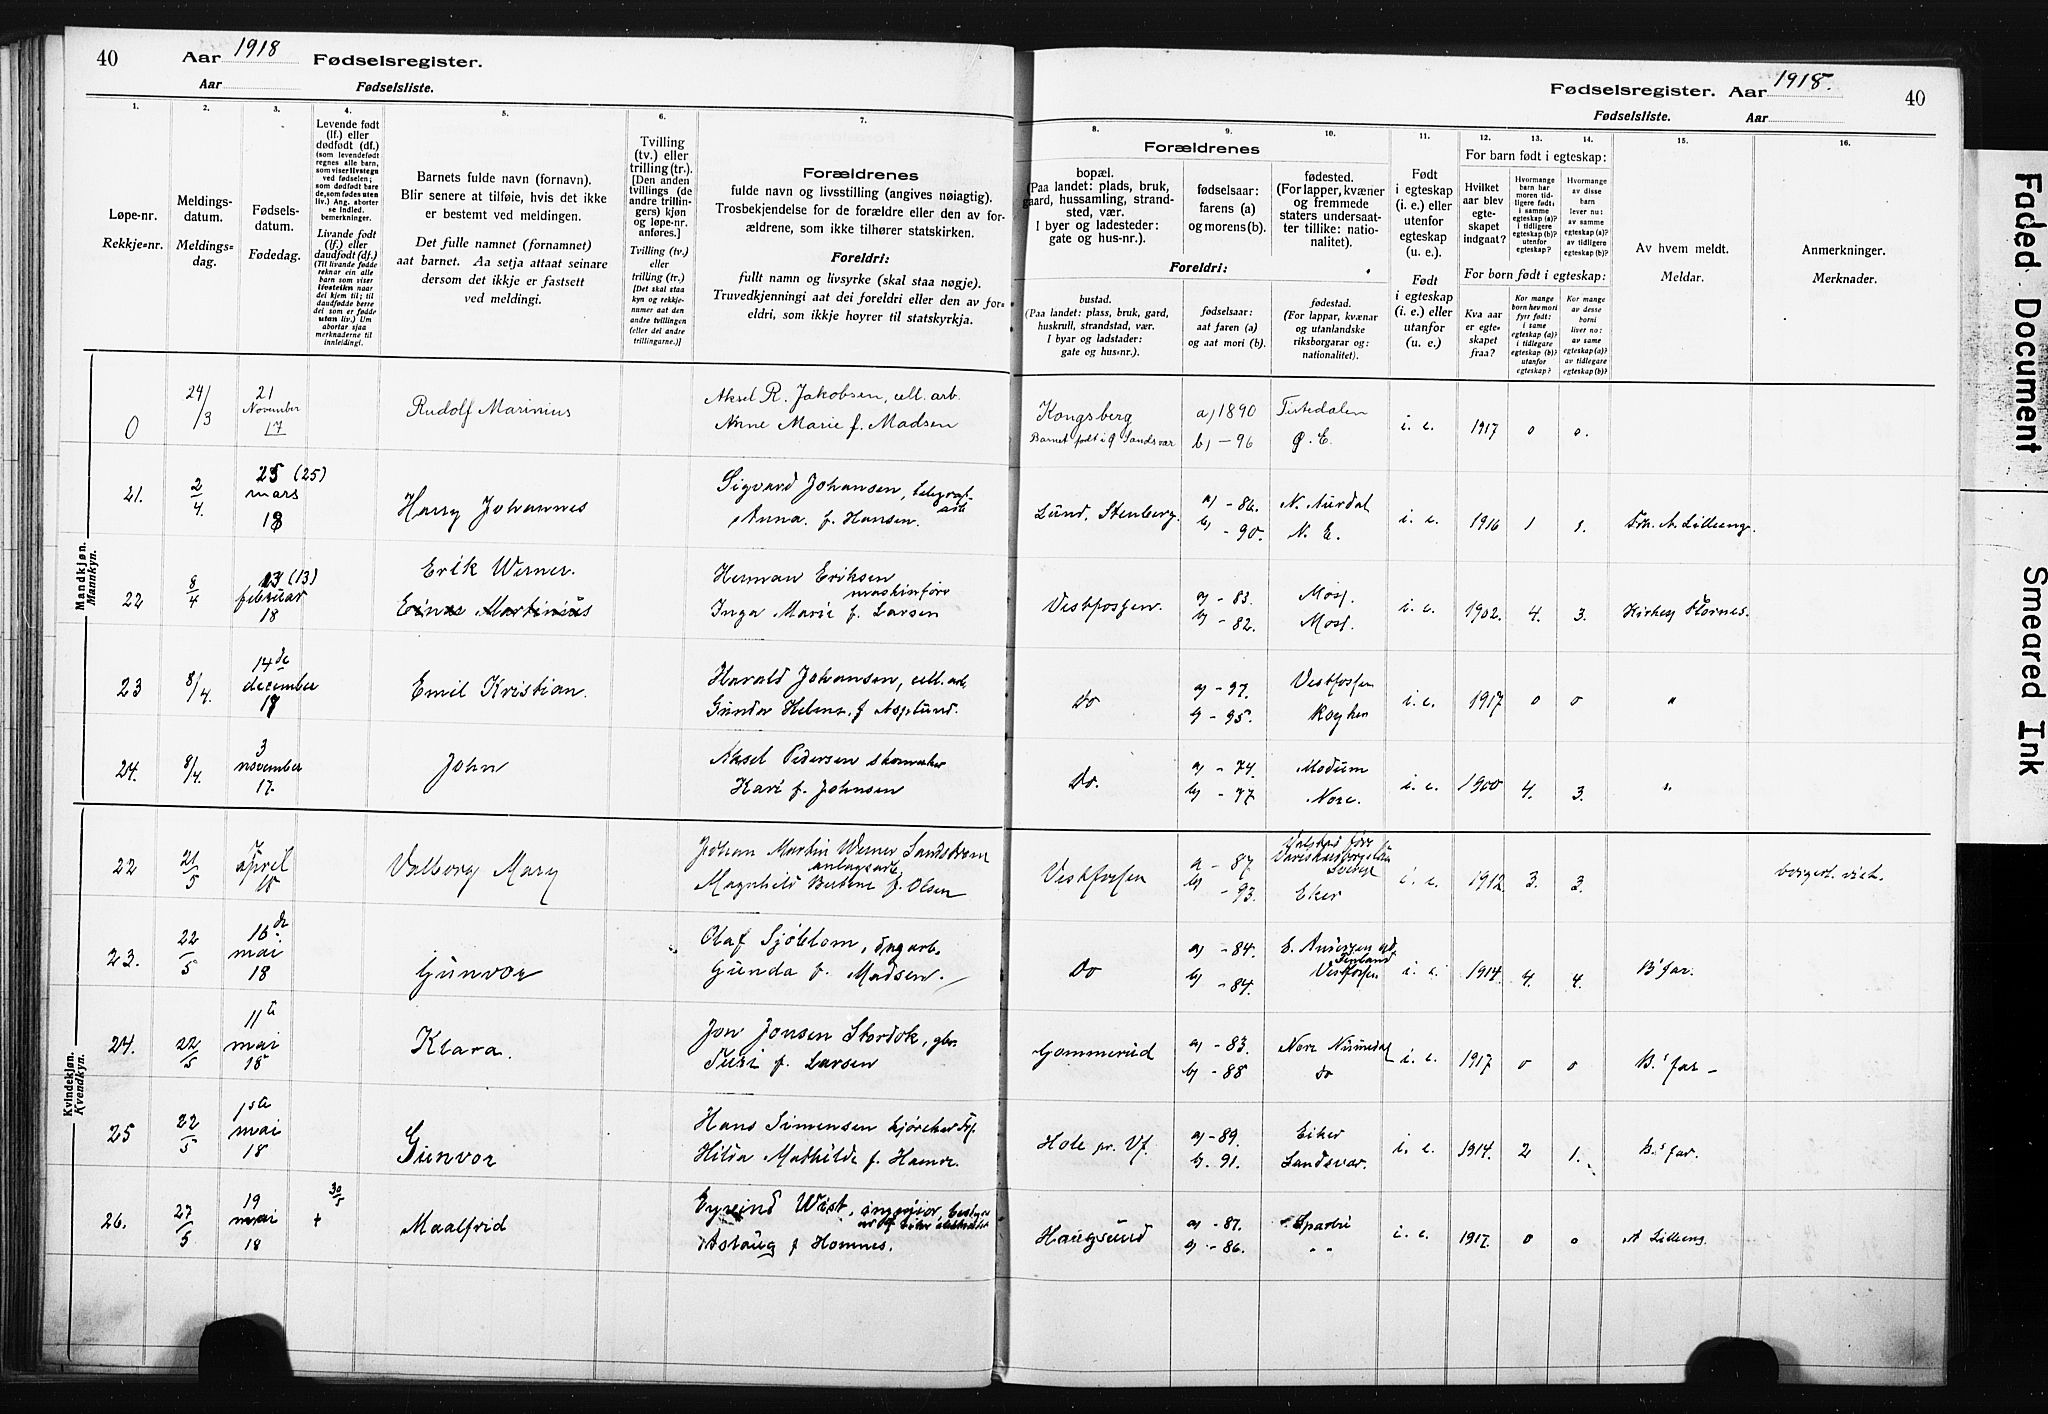 40 Aar 1918 Fødselsregister.
Aar Fødselsliste.
1.
Løpe-nr.
Rekkje-nr.
2.
Meldings-
datum.
Meldings-
dag.
3.
Fødsels-
datum.
Fødedag.
4.
Levende født
(lf.) eller
dødfødt (df.)
(som levendefødt
regnes alle barn,
som viser livstegn
ved fødselen;
som dødfødt bare
de, som fødes uten
liv.) Ang. aborter
se indled.
bemerkninger.
Livande født
(lf.) eller
daudfødt (df.)
(Til livande fødde
reknar ein alle
born som viser
livsteikn naar
dei kjem til; til
daudfødde berre
dei som er fødde
utan liv.) Um
abortar sjaa
merknaderne til
innleiding).
5.
Barnets fulde navn (fornavn).
Blir senere at tilføie, hvis det ikke
er bestemt ved meldingen.
Det fulle namnet (fornamnet)
aat barnet. Aa setja attaat seinare
dersom det ikkje er fastsett
ved meldingi.
6.
Tvilling
(tv.) eller
trilling (tr.).
[Den anden
tvillings (de
andre trillin-
gers) kjøn
og løpe-nr.
anføres.]
Tvilling (tv.)
eller
trilling (tr.)
[Det skal staa
kyn og rekkje-
numer aat den
andre tvillingen
(eller dei andre
trillingarne.)]
7.
Forældrenes
fulde navn og livsstilling (angives nøiagtig).
Trosbekjendelse for de forældre eller den av for-
ældrene, som ikke tilhører statskirken.
Foreldri:
fullt namn og livsyrke (skal staa nøgje).
Truvedkjenningi aat dei foreldri eller den av for-
eldri, som ikkje høyrer til statskyrkja.
Fødselsregister. Aar 1918. 40
Fødselsliste. Aar
Forældrenes
8.
bopæl.
(Paa landet: plads, bruk,
gaard, hussamling, strand-
sted, vær.
I byer og ladesteder:
gate og hus-nr.).
9.
fødselsaar:
farens (a)
og morens (b).
10.
fødested.
(For lapper, kvæner
og fremmede
staters undersaat-
ter tillike: natio-
nalitet).
Foreldri:
bustad.
(Paa landet: plass, bruk, gard,
huskrull, strandstad, vær.
I byar og ladstader:
gate og hus-nr.).
fødselsaar:
aat faren (a)
og aat mori (b).
fødestad.
(For lappar, kvænar
og utanlandske
riksborgarar og:
nationalitet).
11.
Født
i egteskap
(i. e.) eller
utenfor
egteskap
(u. e.).
Født
i egteskap
(i. e.) eller
utanfor
(u. e.)
For barn født i egteskap:
12.
Hvilket
aar blev
egte-
skapet
indgaat?
13.
Hvormange
barn har
moren tid-
ligere født:
i samme
egteskap (a)?
i tidligere
egteskap (b)?
utenfor
egteskap?
14.
Hvormange
av disse
barn
lever nu:
av samme
egteskap (a)?
av tidligere
egteskap (b)?
For born født i egteskap:
Kva aar
er egte-
skapet
fraa?
Kor mange
born hev mori
fyrr født:
i same
egteskap (a)?
i tidlegare
egteskap (b)?
utanfor
egteskap?
Kor mange
av desse
borni
liver no:
av same
egteskap (a)?
av tidlegare
egteskap (b)?
15.
Av hvem meldt.
Meldar.
16.
Anmerkninger.
Merknader.
Mandkjøn.
Mannkyn.
0 24/3 21 November 17 Rudolf Marinius Aksel R. Jakobsen, cell. arb. Kongsberg a) 1890 Tistedalen i. e. 1917 0 0.
Anne Marie f. Madsen Barnet født i Ø Sandsvær b) - 96 Ø. E.
21. 2/4. 25 (25) mars 18 Harry Johannes Sigvard Johansen, telegraf- arb Lund, Stenberg. a) - 86. N. Aurdal i. e. 1916 1 1. Frk. A. Lilleeng.
Anna f. Hansen. b) - 90. N. E.
22 8/4 13 (13) februar 18 Erik Werner. Herman Eriksen maskinføre Vestfossen. a) - 83. Moss. i. e. 1902. 4. 3. Kirkes Stornes.
Einar Martinius Inga Marie f. Larsen b) - 82. Moss.
23 8/4. 14de december 17 Emil Kristian. Harald Johansen, cell. arb. do a) - 97. Vestfossen i. e. 1917 0 0 "
Gunda Helene f Asplund. b) - 95. Røyken
24. 8/4. 3 november 17. John Aksel Pedersen skomaker Do. a) - 74. Modum i. e. 1900 4. 3. "
Kari f. Johnsen b) - 77 Nore.
Kvindekjøn.
Kvendkyn.
22 21/5 7 april 18 Valborg Mary Johan Martin Werner Sandstrøm anlægsarb. Vestfossen a - 87. Sverge i. e. 1912 3. 3. borgerl. viet.
Magnhild Bertine f. Olsen b) - 93. Eker
23. 22/5 16de mai 18 Gunvor Olaf Sjöblom, dagarb. do a) - 84. Finland i. e. 1914 4. 4. B' far.
Gunda f. Madsen. b) - 84. Vestfossen
24. 22/5 11te mai 18 Klara. Jon Jonsen Stordok, gbr. Gommerud a) - 83. Nore Numedal i. e. 1917 0 0 B.' far -
Turi f. Larsen b) - 88 do
25 22/5 1ste mai 18 Gunvor Hans Simensen kjørekar Hole pr. Vf. a) - 89. Eiker i. e. 1914. 2 1. B.' far.
Hilda Mathilde f. Hamre. b. 91. Sandsvær.
26. 27/5 19 mai 18 + 30/5 Maalfrid Eyvind Wist, ingeniør, Haugsund a) - 87. Sparbu i. e. 1917. 0 0 A Lilleeng.
Aslaug f Homnes. b) - 86. " "
Faded Document
Smeared Ink